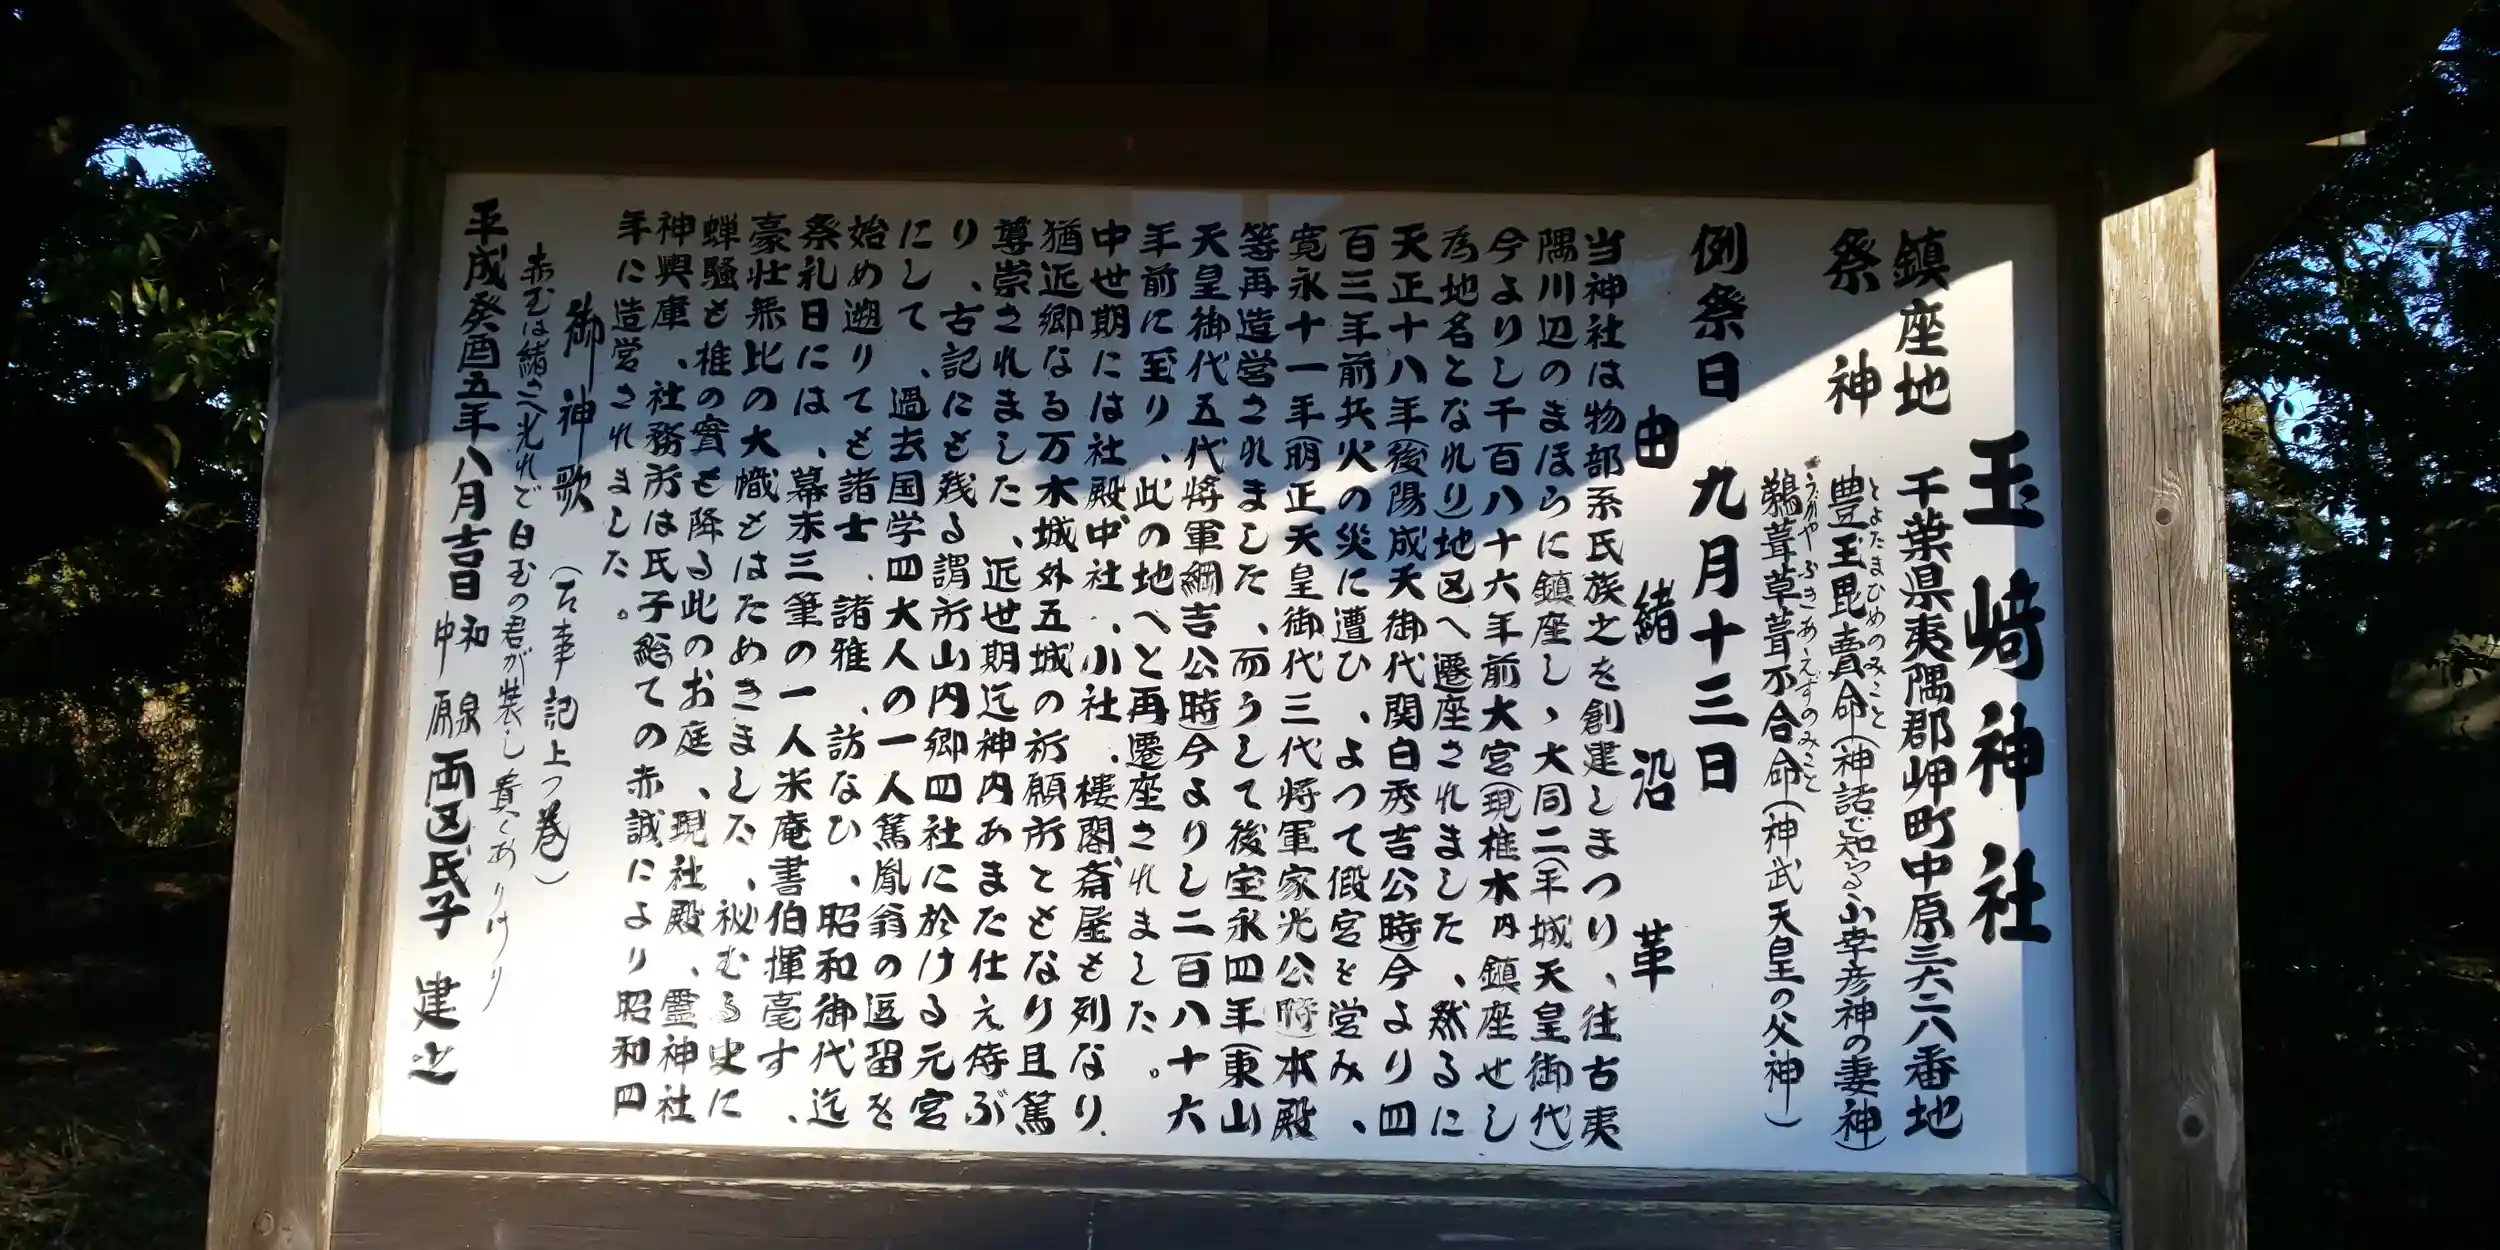 玉﨑神社
鎮座地　千葉県夷隅郡岬町中原三六二八番地
祭神　豊玉毘賣命（神話で知らる山幸彦神の妻神）
とよたまひめのみこと
鵜葺草葺不合命（神武天皇の父神）
うがやぶきあえずのみこと
例祭日　九月十三日
由緒沿革
当神社は物部系氏族之を創建しまつり、往古夷
隅川辺のまほらに鎮座し、大同二（平城天皇御代）
今よりし千百八十六年前大宮（現椎木内鎮座せし
為地名となれり）地区へ遷座されました、然るに
天正十八年（後陽成天御代関白秀吉公時）今より四
百三年前兵火の災に遭ひ、よつて假宮を営み、
寛永十一年（明正天皇御代三代将軍家光公時）本殿
等再造営されました、而うして後宝永四年（東山
天皇御代五代将軍綱吉公時）今よりし二百八十六
年前に至り、此の地へと再遷座されました。
中世期には社殿中社、小社、樓閣斎屋も列なり、
猶近郷なる万木城外五城の祈願所ともなり且篤
尊崇されました、近世期迄神内あまた仕え侍ぶ
り、古記にも残る謂所山内郷四社に於ける元宮
にして、過去国学四大人の一人篤胤翁の逗留を
始め遡りても諸士、諸雅、訪なひ、昭和御代迄
祭礼日には、幕末三筆の一人米庵書伯揮毫す、
豪壮無比の大幟もはためきました、秘むる史に
蝉騒も椎の實も降る此のお庭、現社殿、霊神社
神輿庫、社務所は氏子総ての赤誠により昭和四
年に造営されました。
御神歌　（古事記上つ巻）
赤玉は緒さへ光れど白玉の君が装し貴くありけり
平成癸酉五年八月吉日　和泉中原両区氏子　建之